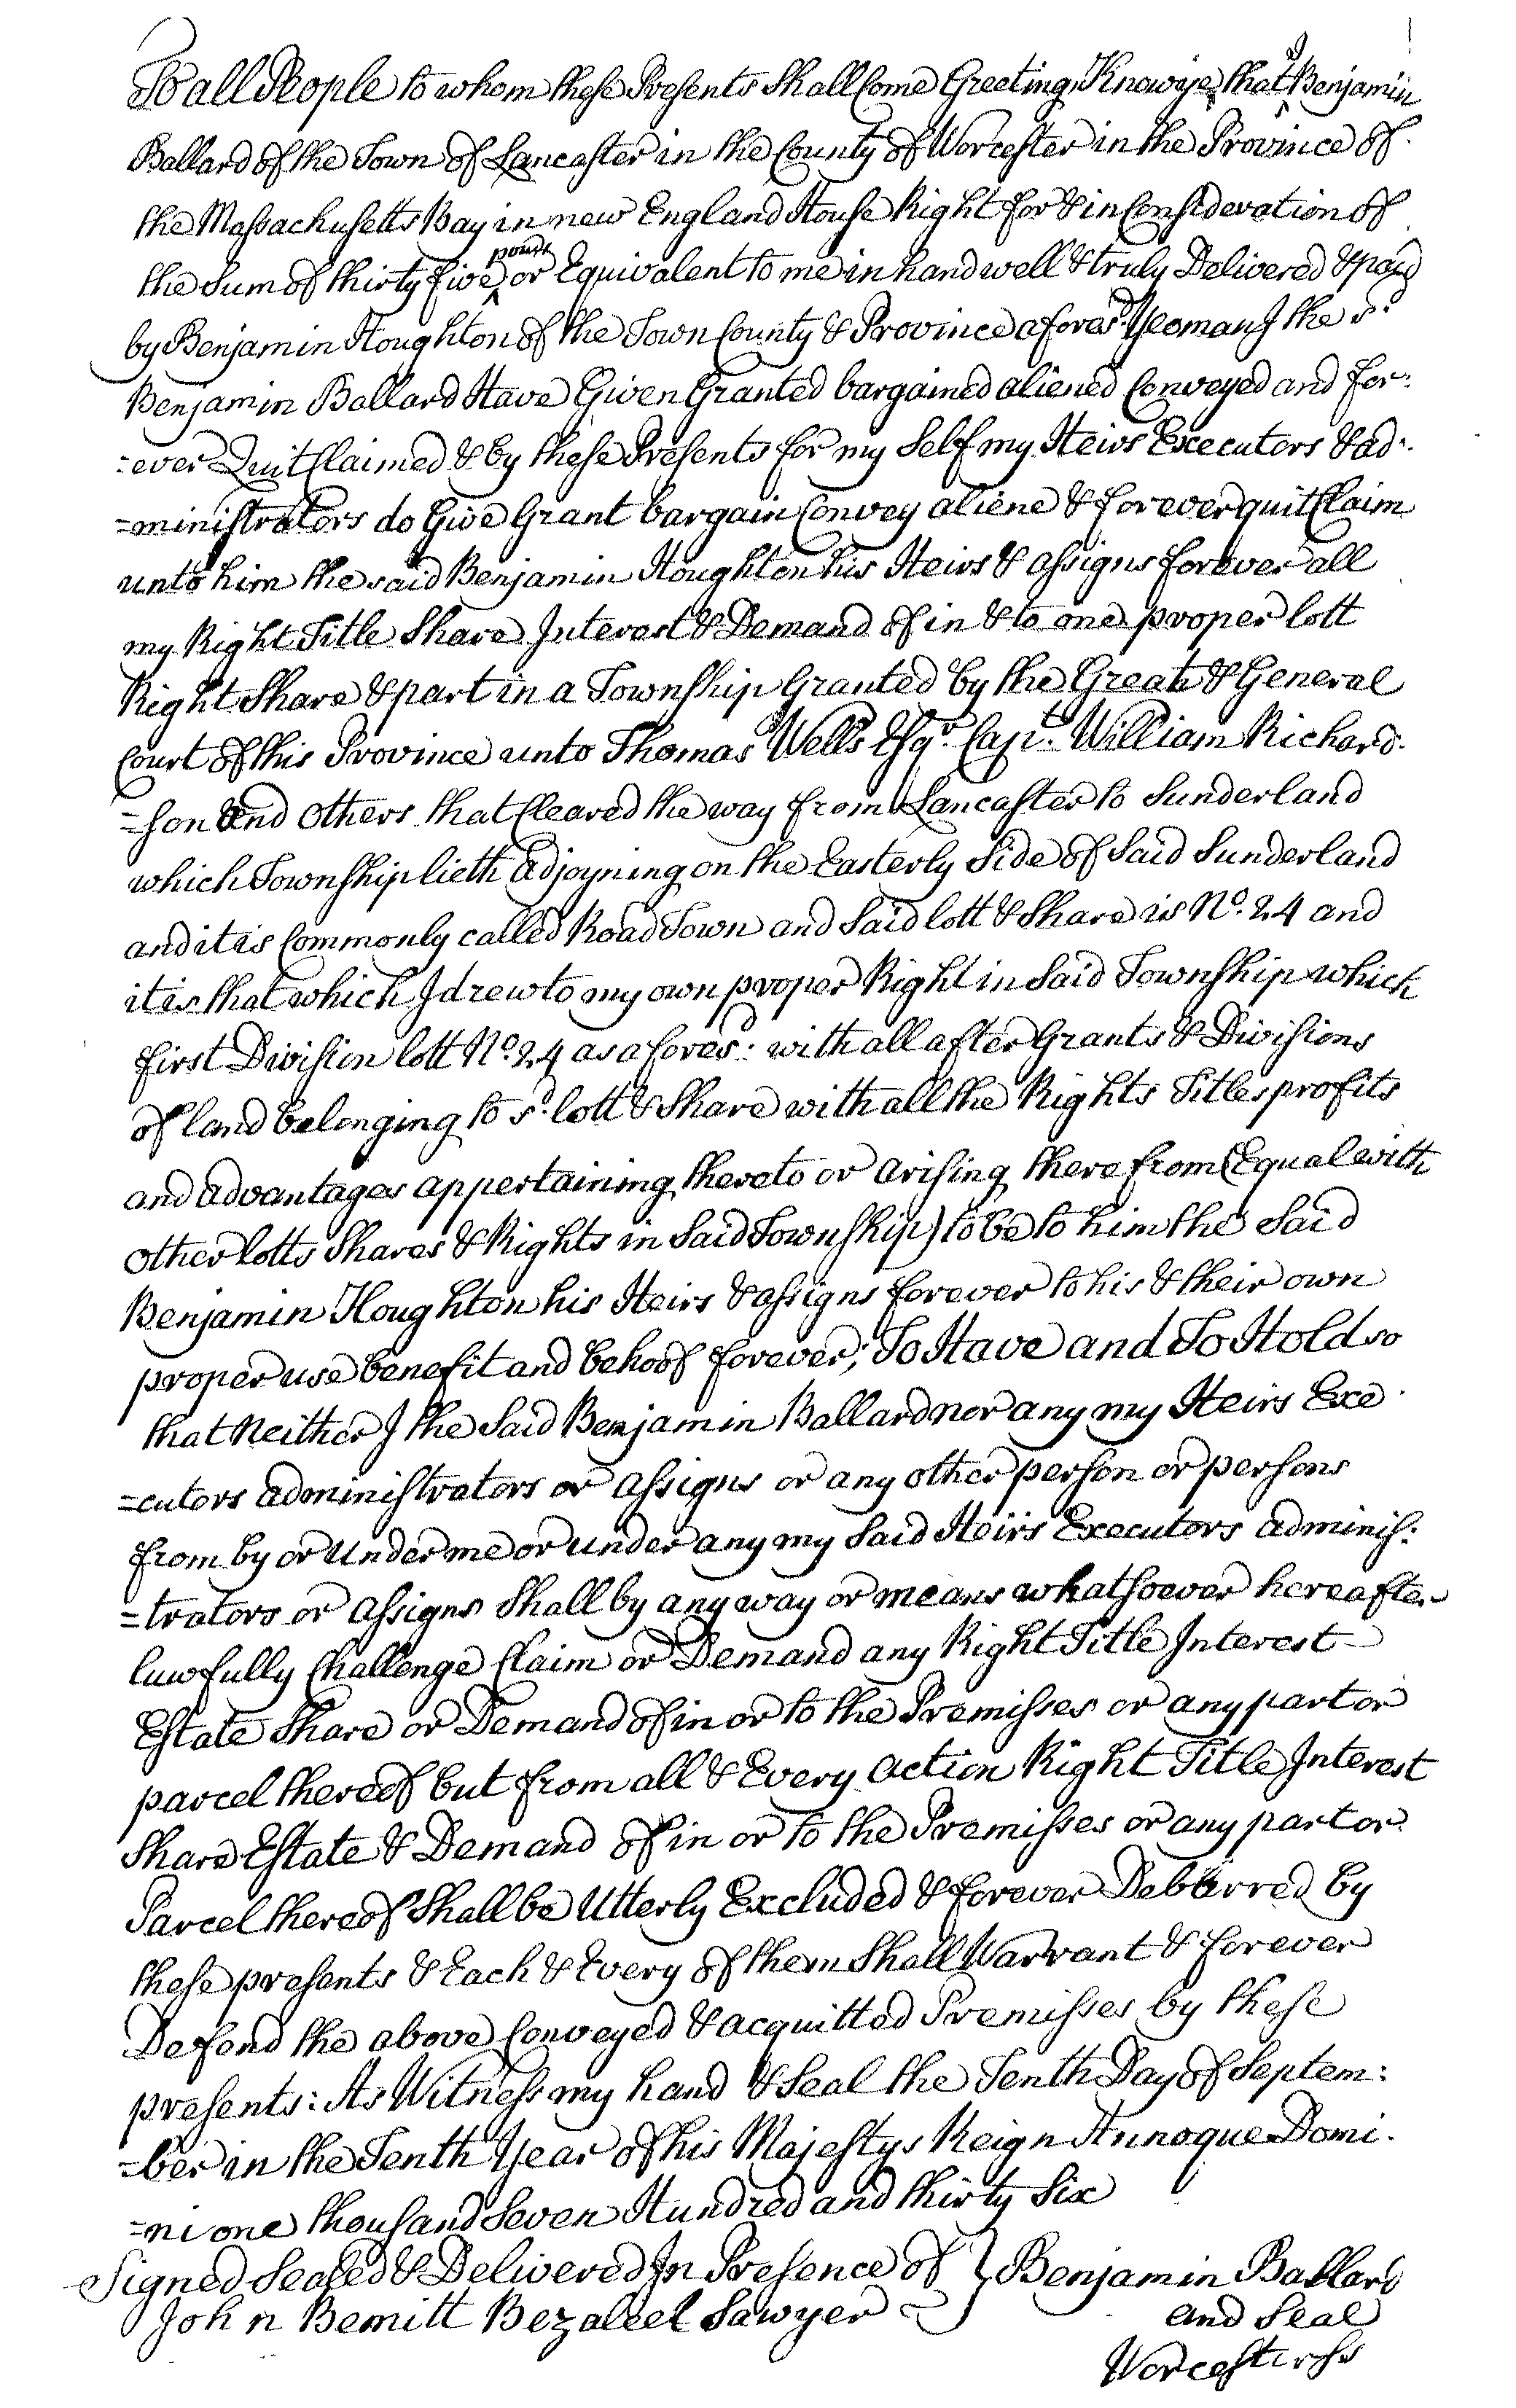 To all People to whom these Presents Shall Come Greeting, Know ye that I Benjamin
Ballard of the Town of Lancaster in the County of Worcester in the Province of
the Massachusetts Bay in new England House Right for & in Consideration of
the Sum of thirty five pounds or Equivalent to me in hand well & truly Delivered & paid
by Benjamin Houghton of the Town County & Province aforesd. Yeoman I the sd.
Benjamin Ballard Have Given Granted bargained aliened Conveyed and for:
=ever Quit Claimed & by these Presents for my Self my Heirs Executors & ad:
=ministrators do Give Grant bargain Convey aliene & forever quit Claim
unto him the said Benjamin Houghton his Heirs & assigns forever all
my Right Title Share Interest & Demand of in & to one proper lott
Right Share & part in a Township Granted by the Great & General
Court of this Province unto Thomas Wells Esqr. Capt. William Richard-
=son and others that Cleared the way from Lancaster to Sunderland
which Township lieth adjoyning on the Easterly Side of Said Sunderland
and it is Commonly called Road Town and Said lott & Share is No. 24 and
it is that which I drew to my own proper Right in Said Township which
first Division lott No. 24 as aforesd: with all after Grants & Divisions
of land belonging to sd. lott & Share with all the Rights Titles profits
and advantages appertaining thereto or arising therefrom (Equal with
other lotts Shares & Rights in Said Township) to be to him the Said
Benjamin Houghton his Heirs & assigns forever to his & their own
proper use benefit and behoof forever; To Have and To Hold so
that Neither I the Said Benjamin Ballard nor any my Heirs Exe
=cutors administrators or assigns or any other person or persons
from by or Under me or under any my Said Heirs Executors adminis:
=trators or assigns Shall by any way or means whatsoever hereafter
lawfully Challenge Claim or Demand any Right Title Interest
Estate Share or Demand of in or to the Premisses or any part or
parcel thereof but from all & Every action Right Title Interest
Share Estate & Demand of in or to the Premisses or any part or
Parcel thereof Shall be Utterly Excluded & forever Debarred by
these presents & Each & Every of them Shall Warrant & forever
Defend the above Conveyed & acquitted Premisses by these
presents: As Witness my hand & Seal the Tenth Day of Septem:
=ber in the Tenth Year of his Majestys Reign Annoque Domi-
=ni one thousand Seven Hundred and thirty Six
Signed Sealed & Delivered In Presence of } Benjamin Ballard
John Bemitt Bezaleel Sawyer and Seal
Worcester ss